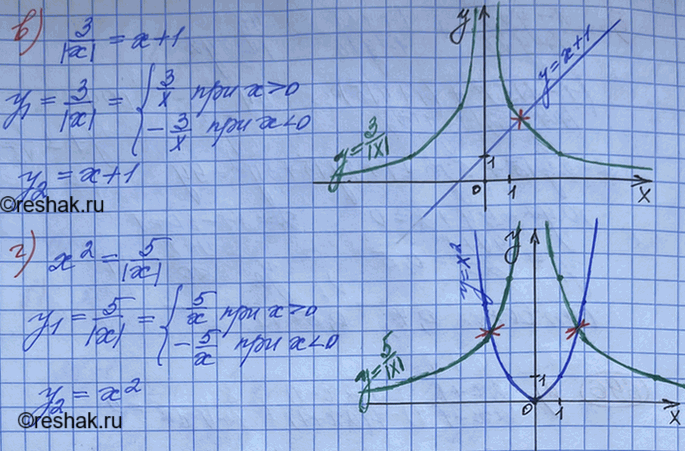 в) 3/|x| = x+1
y₁ = 3/|x| = { 3/x при x>0
-3/x при x<0
y₂ = x+1
©reshak.ru
y
y=x+1
y=3/|x|
1
0 1 x
г) x² = 5/|x|
y₁ = 5/|x| = { 5/x при x>0
-5/x при x<0
y₂ = x²
©reshak.ru
y
y=x²
y=5/|x|
1
0 1 x